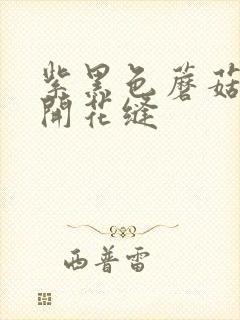 紫黑色蘑菇
開花缝
西普雷